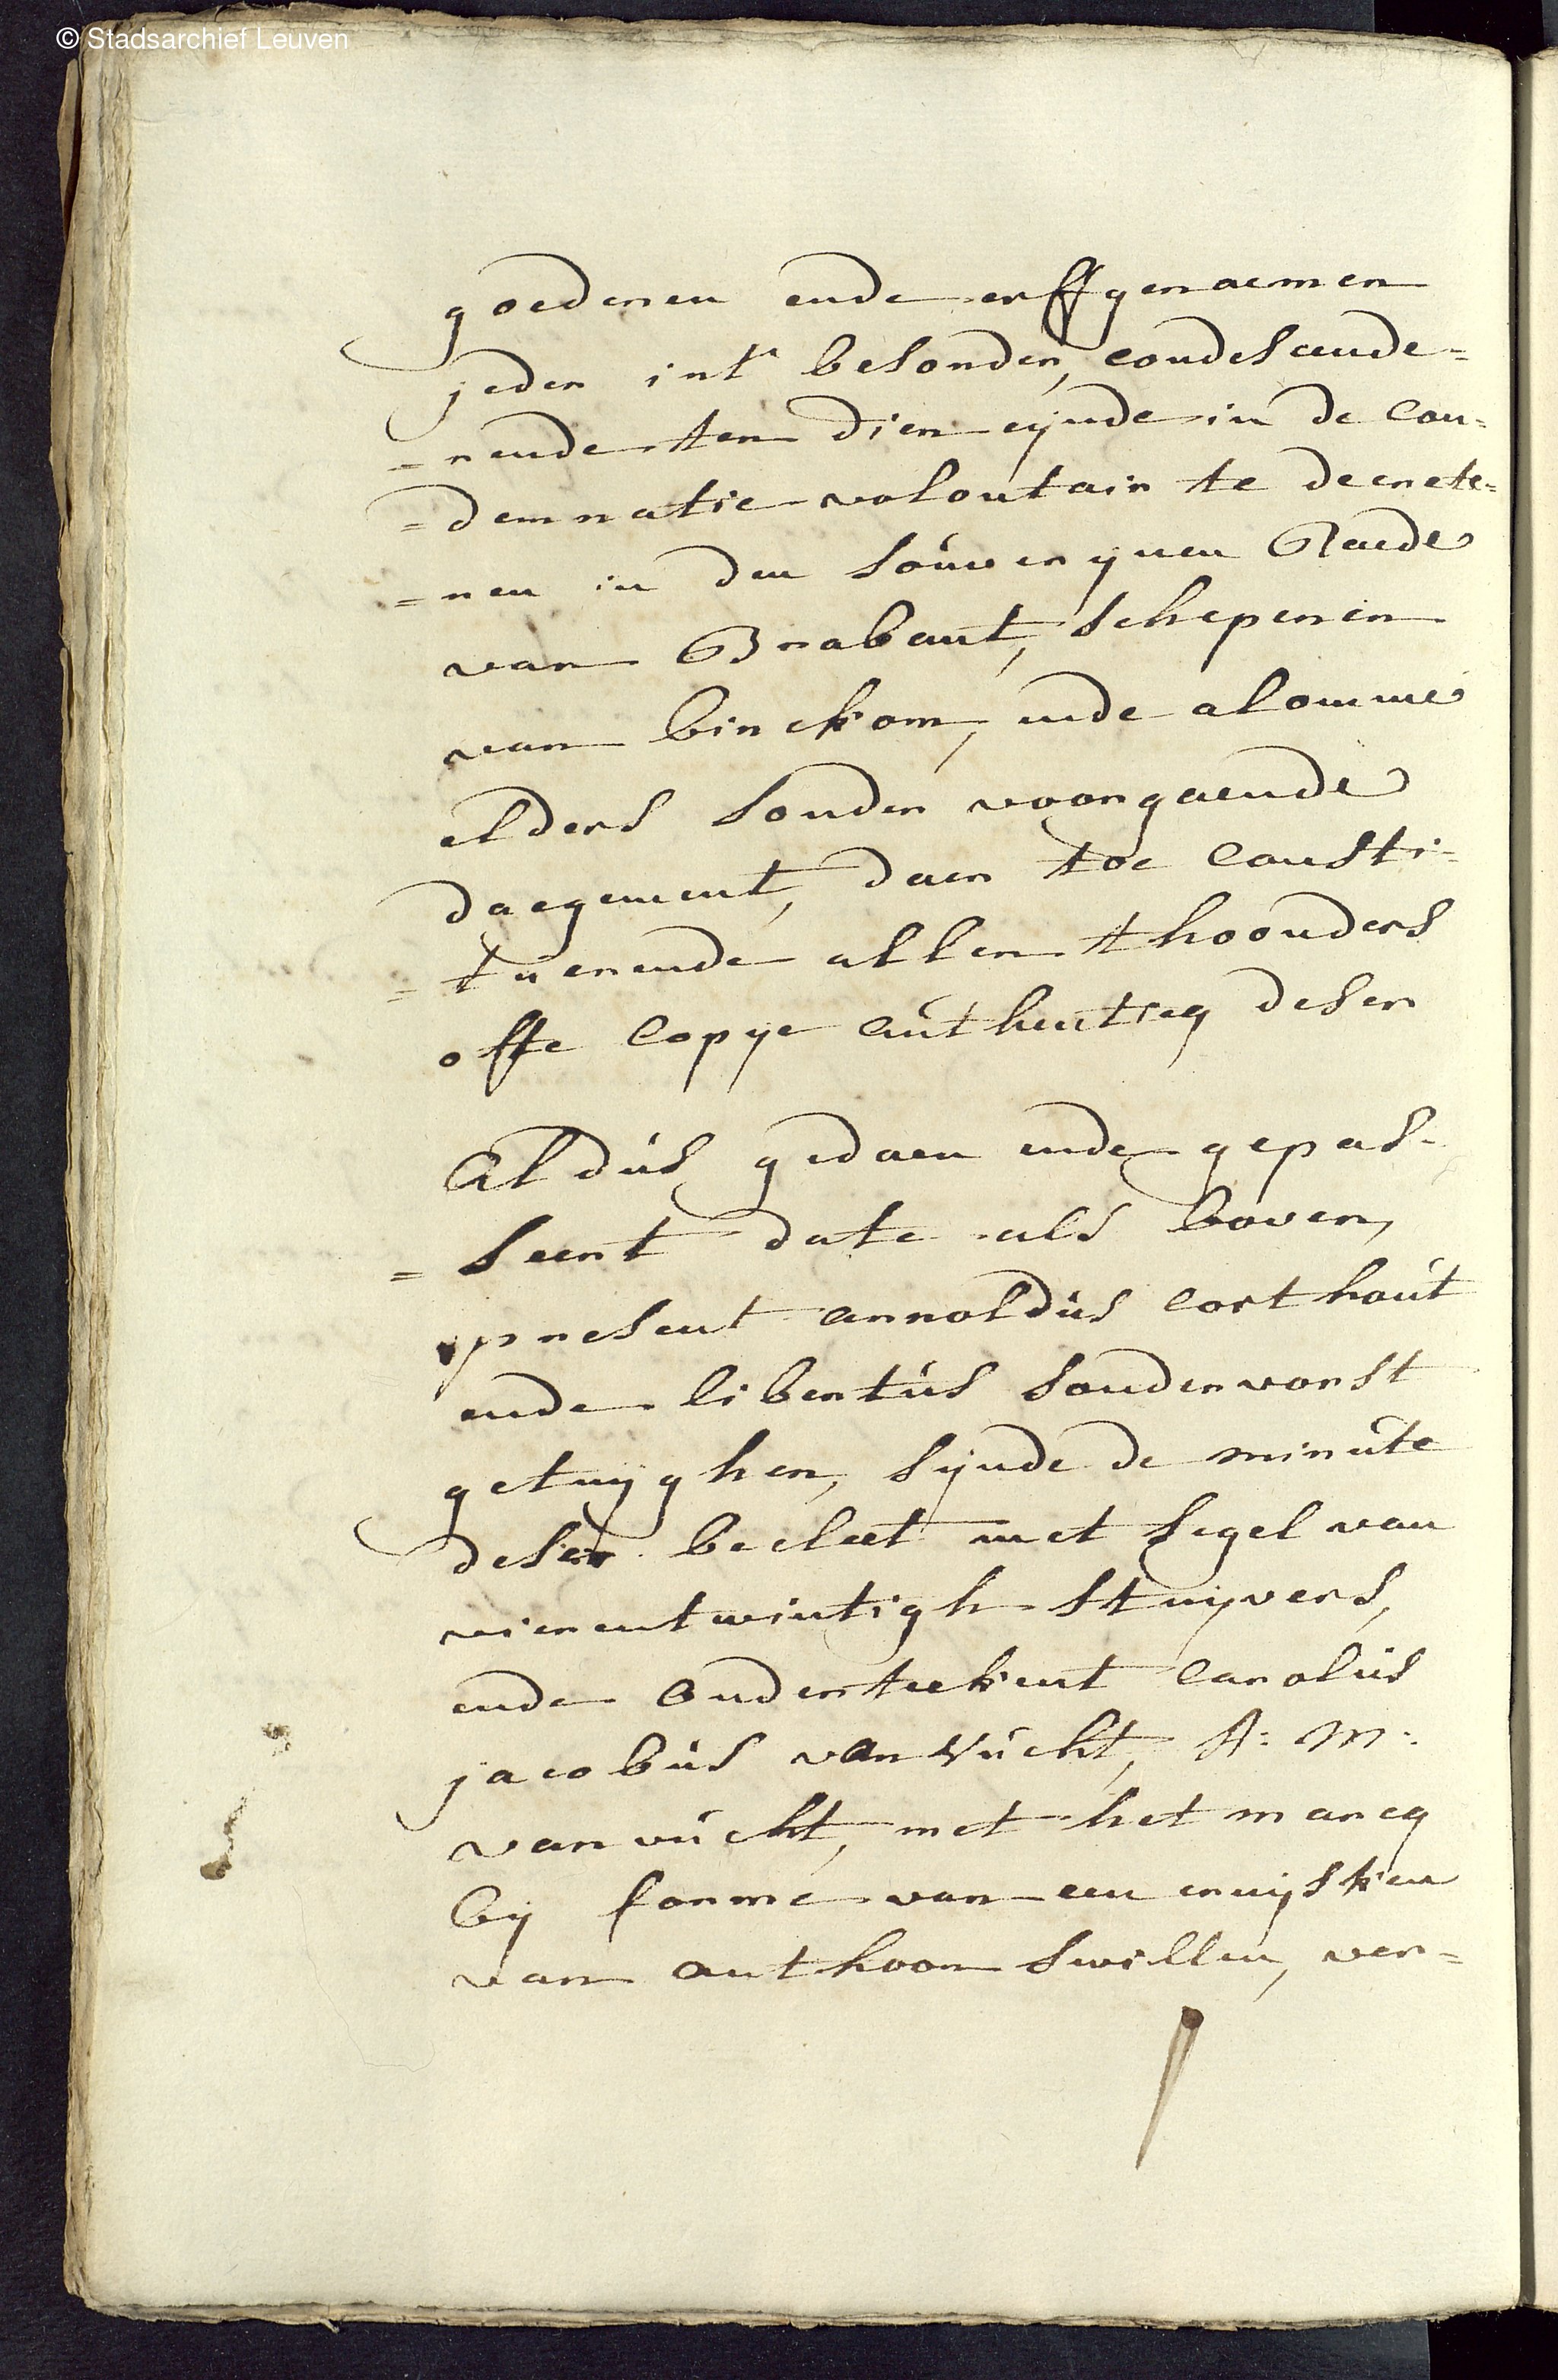 © Stadsarchief Leuven
goederen ende erffgenaemen
jeder int besonder, condesende=
=rende ten dien eynde in de con=
=demnatie voloutair te decrete=
=ren in den souwerynen Raede
van Brabant, schepenen
van binckom, ende alomme
elders sonder voorgaende
daegement, daer toe consti=
=tuerende allen thoonders
offe copye authenticq deser
Aldus gedaen ende gepas=
=seert date als boven,
present arnoldus corthout
ende libertus vondervorst
getuyghen, synde de minute
deser becleet met segel van
vierentwintigh stuyvers,
ende onderteekent Carolus
jacobus van Vucht, A: M:
van vucht, met het marcq
by forme van een cruysken
van anthoon swillen, ver=